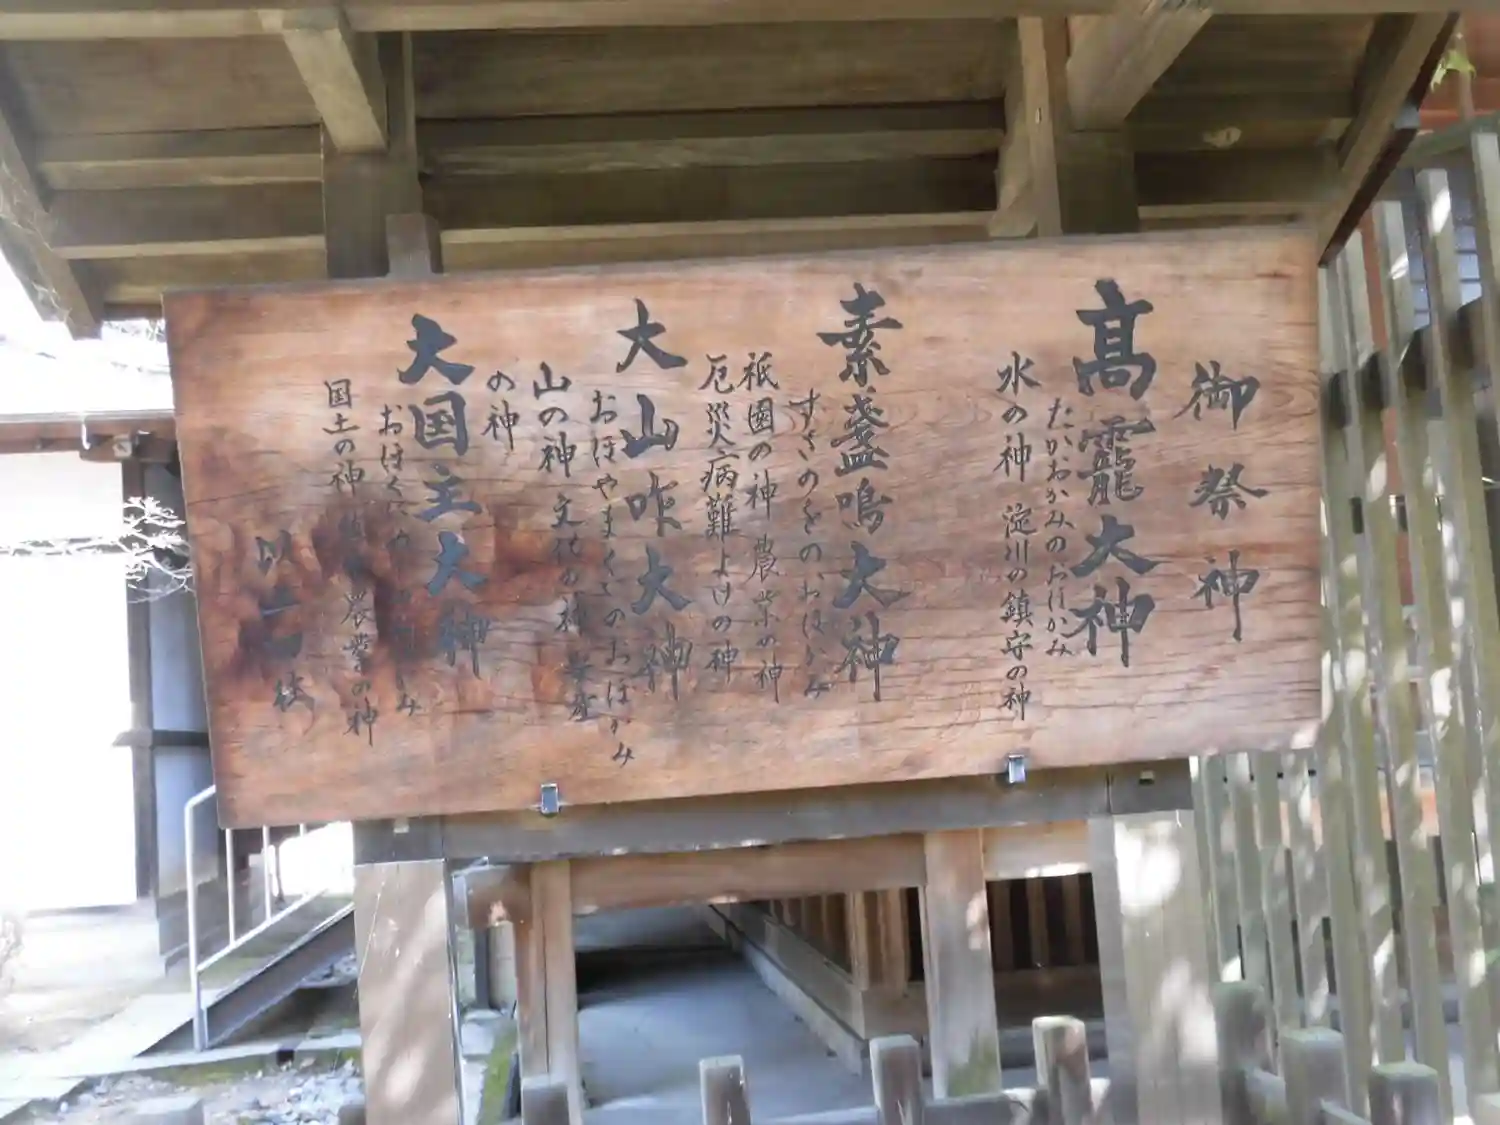 御祭神
髙龗大神
たかおかみのおほかみ
水の神 淀川の鎮守の神
素盞鳴大神
すさのをのおほかみ
祇園の神 農業の神
厄災病難よけの神
大山咋大神
おほやまくひのおほかみ
山の神 文化の神
の神
大国主大神
おほくに
国土の神 農業の神
以上